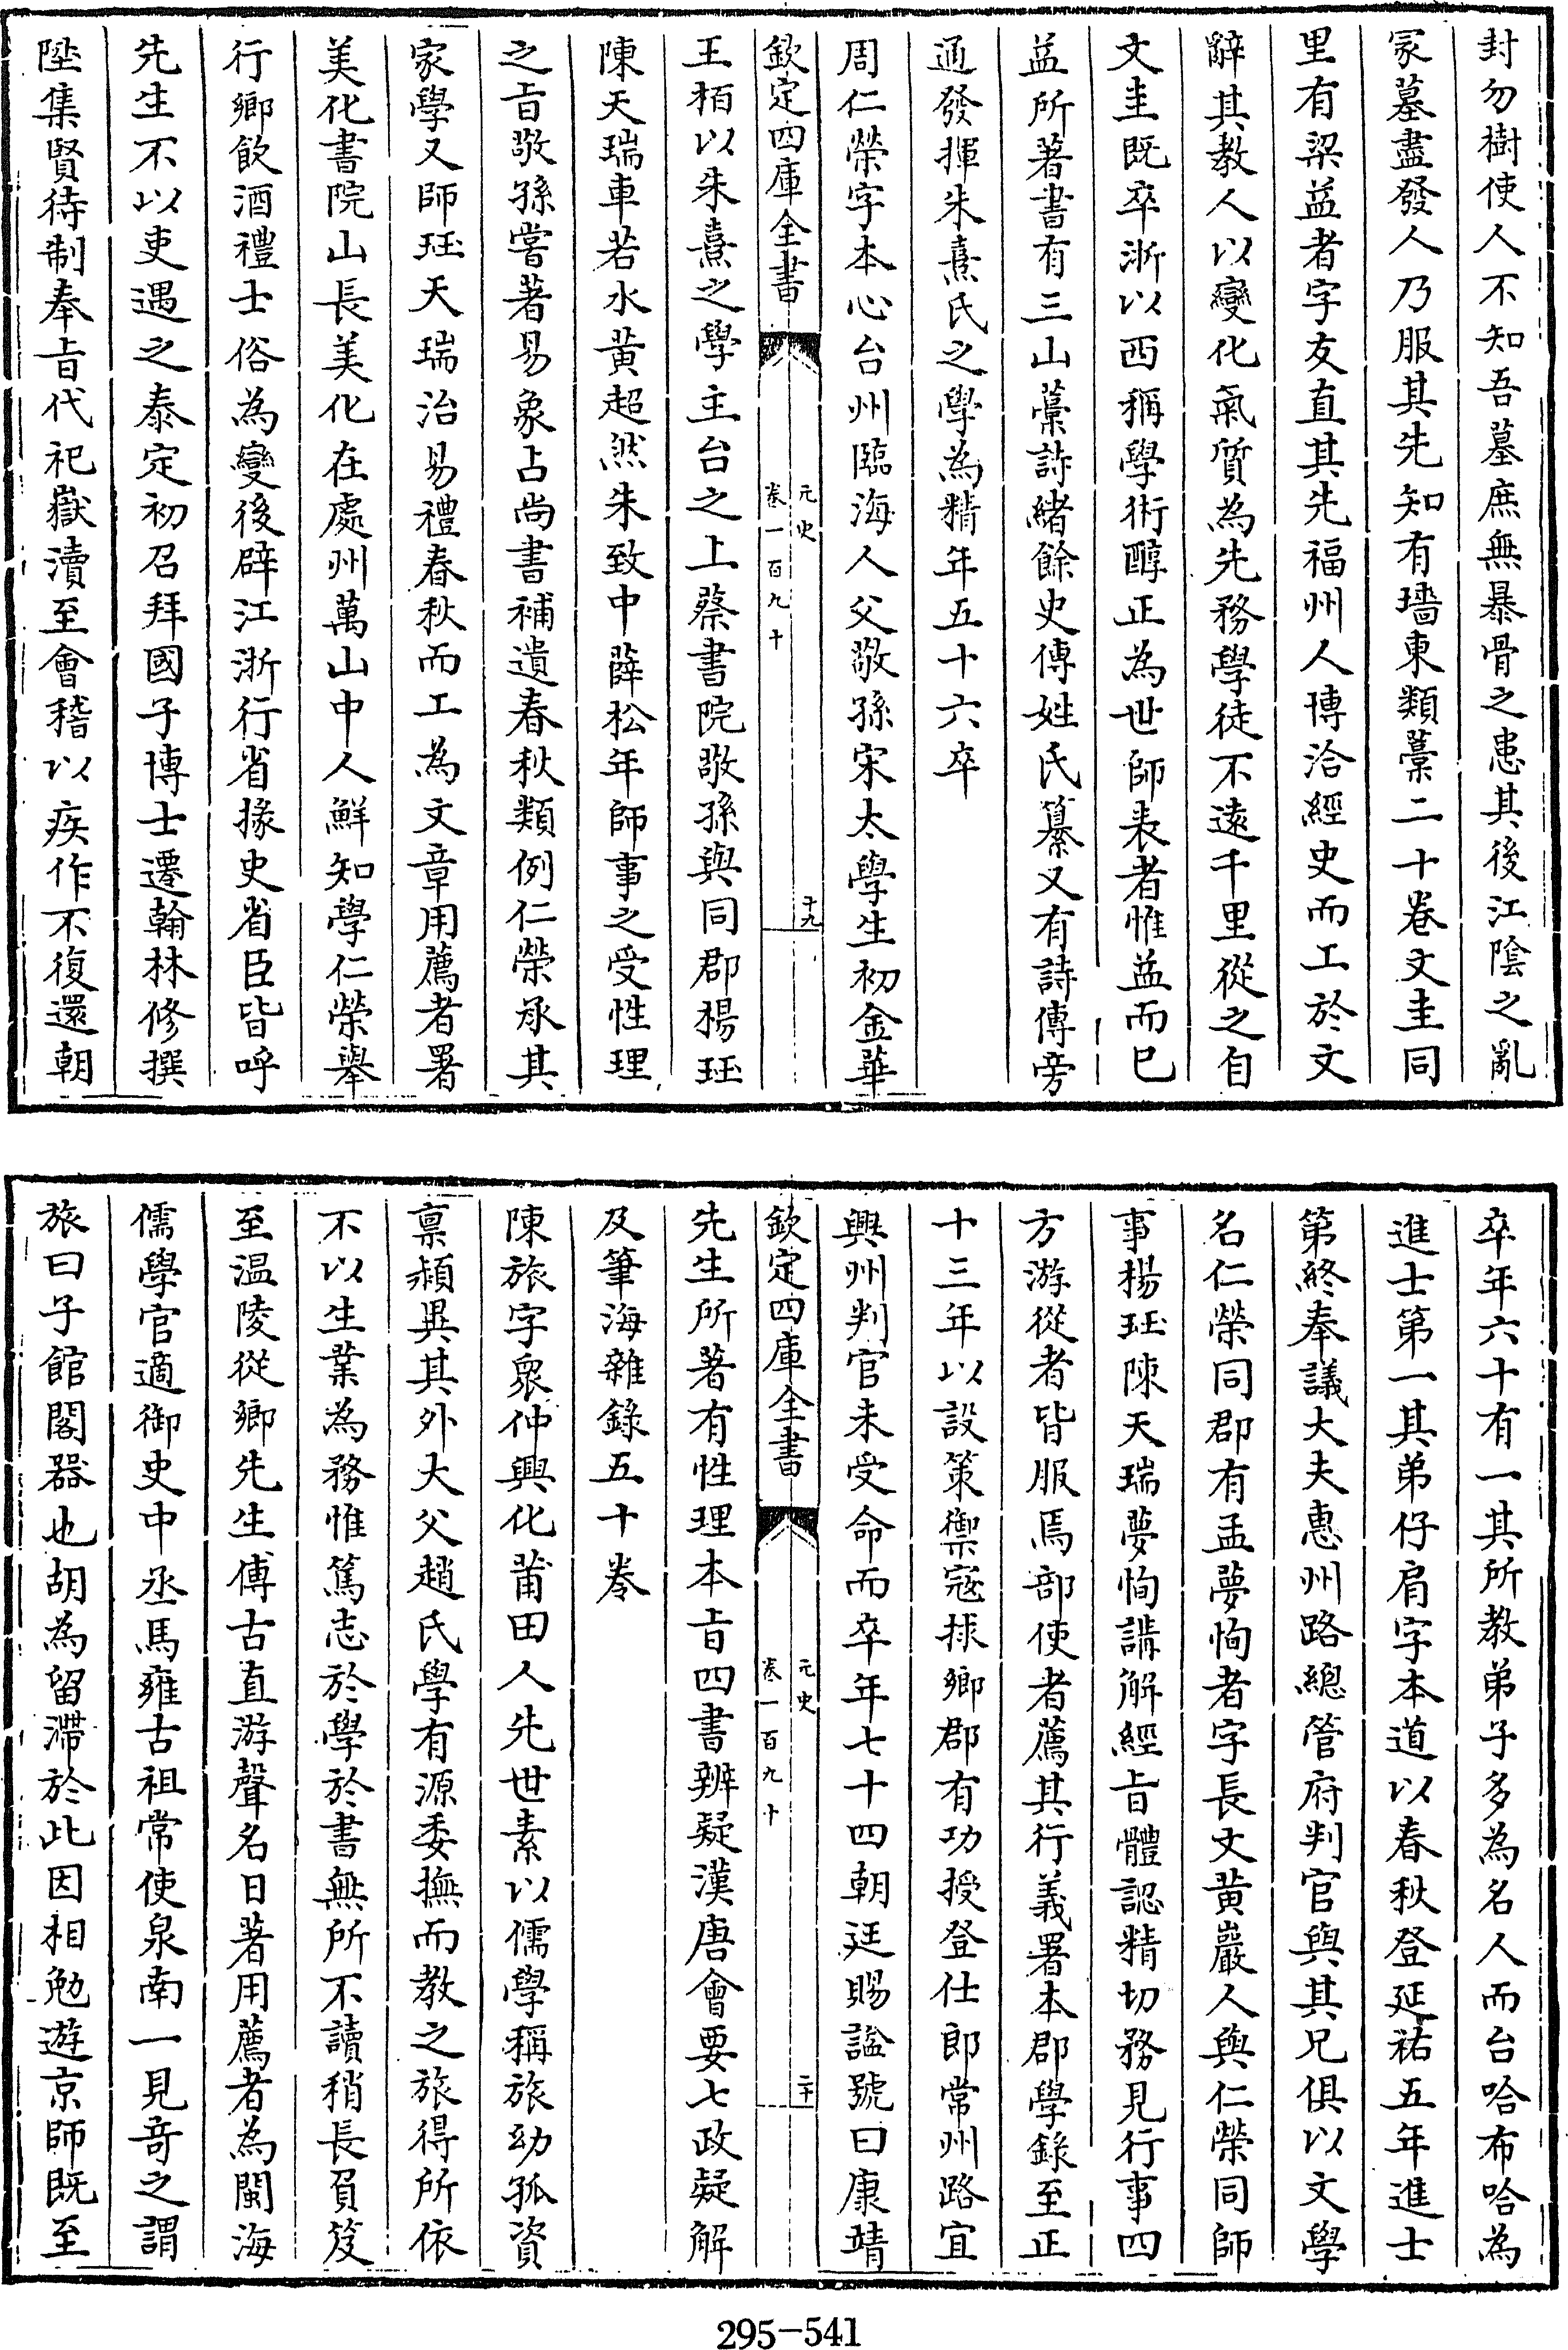 封勿樹使人不知吾墓庶無暴骨之患其後江陰之亂
冡墓盡發人乃服其先知有墻東類藁二十卷文圭同
里有梁益者字友直其先福州人博洽經史而工於文
辭其教人以變化氣質為先務學徒不遠千里從之自
文圭既卒浙以西稱學術醇正為世師表者惟益而已
益所著書有三山藁詩緒餘史傳姓氏纂又有詩傳旁
通發揮朱熹氏之學為精年五十六卒
周仁榮字本心台州臨海人父敬孫宋太學生初金華
欽定四庫全書
元史
卷一百九十
十九
王栢以朱熹之學主台之上蔡書院敬孫與同郡楊珏
陳天瑞車若水黄超然朱致中薛松年師事之受性理
之㫖敬孫嘗著易象占尚書補遺春秋類例仁榮承其
家學又師珏天瑞治易禮春秋而工為文章用薦者署
美化書院山長美化在處州萬山中人鮮知學仁榮舉
行鄉飲酒禮士俗為變後辟江浙行省掾史省臣皆呼
先生不以吏遇之泰定初召拜國子博士遷翰林修撰
陞集賢待制奉㫖代祀嶽瀆至會稽以疾作不復還朝
卒年六十有一其所教弟子多為名人而台哈布哈為
進士第一其弟仔肩字本道以春秋登延祐五年進士
第終奉議大夫惠州路總管府判官與其兄俱以文學
名仁榮同郡有孟夢恂者字長文黄巖人與仁榮同師
事楊珏陳天瑞夢恂講解經㫖體認精切務見行事四
方游從者皆服焉部使者薦其行義署本郡學錄至正
十三年以設策禦寇捄鄉郡有功授登仕郎常州路宜
興州判官未受命而卒年七十四朝廷賜諡號曰康靖
欽定四庫全書
元史
卷一百九十
二十
先生所著有性理本㫖四書辨疑漢唐會要七政疑解
及筆海雜錄五十卷
陳旅字衆仲興化莆田人先世素以儒學稱旅幼孤資
禀頴異其外大父趙氏學有源委撫而教之旅得所依
不以生業為務惟篤志於學於書無所不讀稍長負笈
至温陵從鄉先生傅古直游聲名日著用薦者為閩海
儒學官適御史中丞馬雍古祖常使泉南一見竒之謂
旅曰子館閣器也胡為留滯於此因相勉遊京師既至
295-541